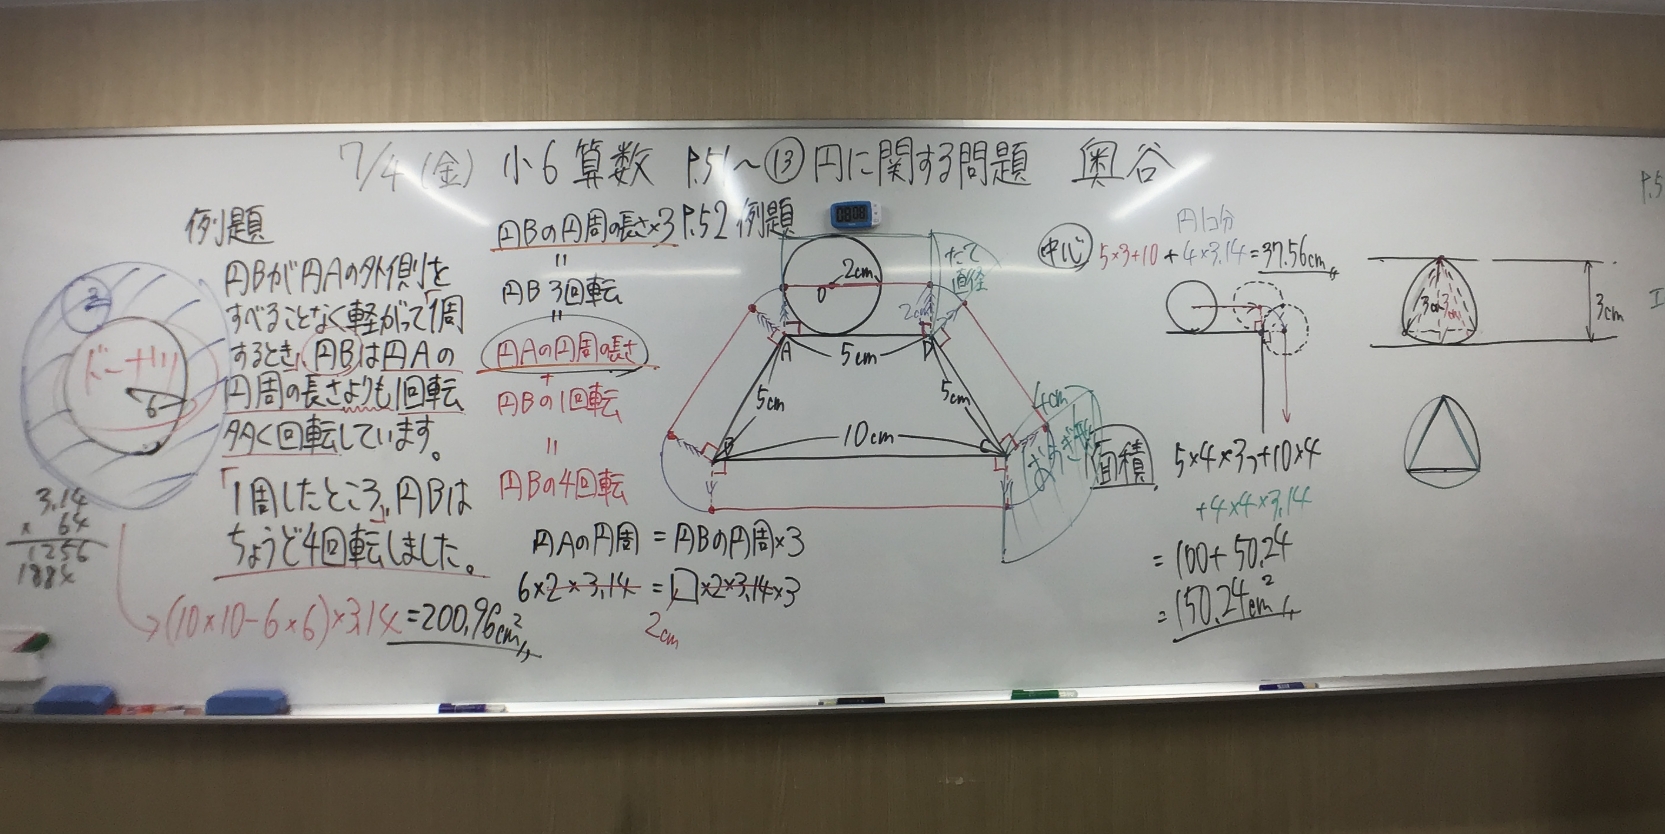 7/4(金) 小6算数 P.51~⑬円に関する問題 奥谷
例題
円Bが円Aの外側を
すべることなく転がって1周
するとき、円Bは円Aの
円周の長さよりも1回転
多く回転しています。
「1周したところ、円Bは
ちょうど4回転しました。
2
ドーナツ
6
3.14
× 64
1256
1884
(10×10-6×6)×3.14=200.96cm²
円Bの円周の長さ×3
=
円B3回転
=
円Aの円周の長さ
+
円Bの1回転
=
円Bの4回転
円Aの円周=円Bの円周×3
6×2×3.14=□×2×3.14×3
2cm
P.52 例題
0808
2cm
O
たて
直径
2cm
A
5cm
D
5cm
5cm
B
10cm
C
4cm
おうぎ形
中心 5×3+10+4×3.14=37.56cm
円1コ分
面積 5×4×3+10×4
+4×4×3.14
=100+50.24
=150.24cm²
3cm
3cm
3cm
P.5